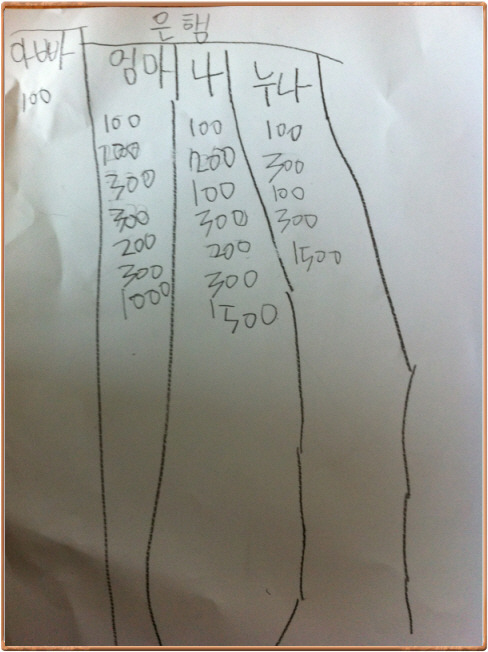 은행
아빠 엄마 나 누나
100
100 100 100
200 200 300
300 100 100
300 300 300
200 200 1500
300 300
1000 1500